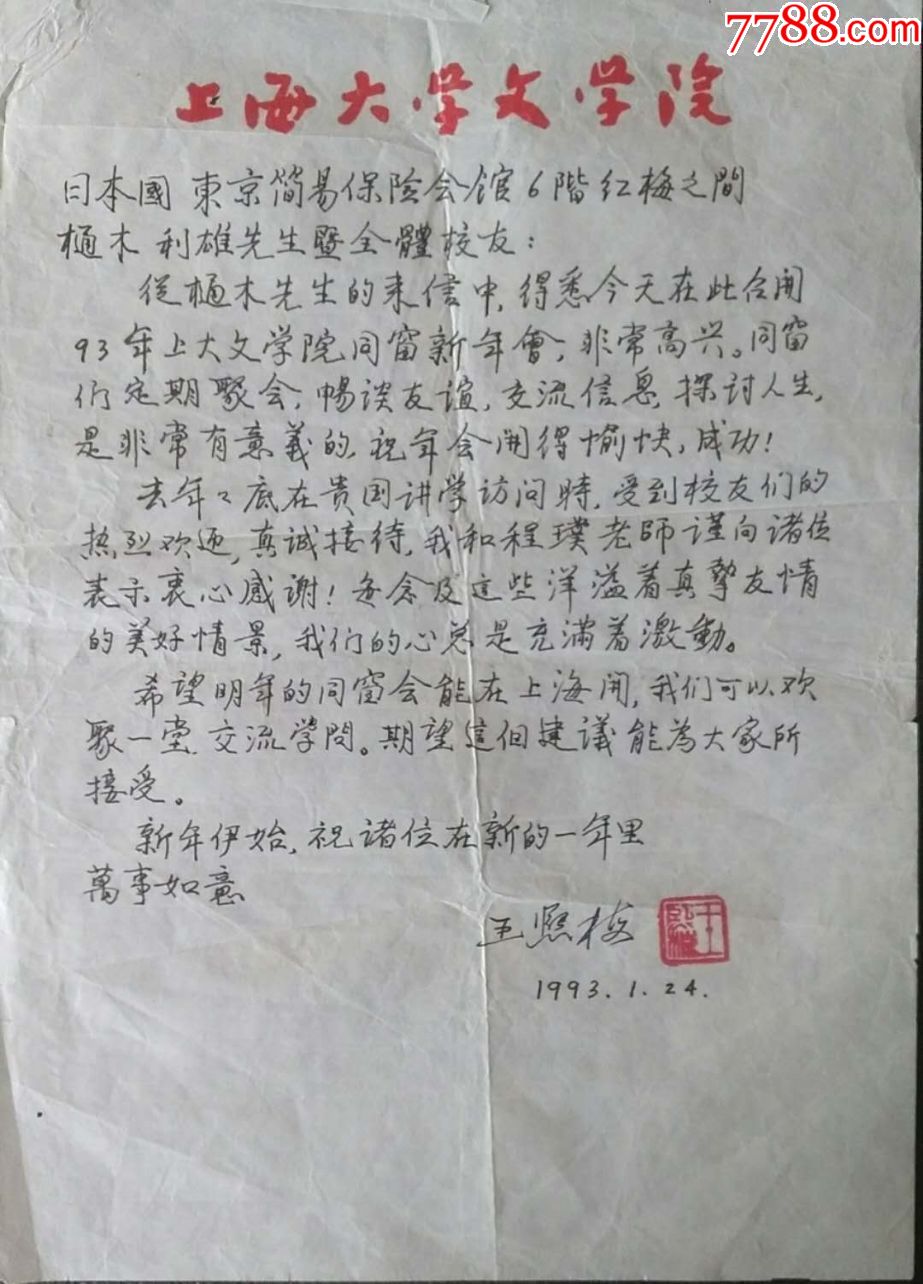 7788.com
上海大学文学院
日本國 東京简易保险会馆6階红梅之間
樋木 利雄先生暨全體校友：
從樋木先生的来信中，得悉今天在此召開
93年上大文学院同窗新年會，非常高兴。同窗
们定期聚会，暢谈友谊，交流信息，探讨人生，
是非常有意義的，祝年会開得愉快，成功！
去年々底在貴国讲学访问時，受到校友们的
热烈欢迎，真诚接待，我和程璞老師谨向诸位
表示衷心感谢！每念及這些洋溢着真摯友情
的美好情景，我们的心总是充滿着激動。
希望明年的同窗会能在上海開，我们可以欢
聚一堂，交流学問。期望這个建议能為大家所
接受。
新年伊始，祝诸位在新的一年里
萬事如意
王熙梅
1993.1.24.